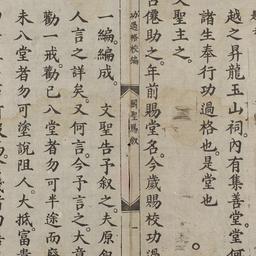 越之昇龍玉山祠內有集善堂堂何
諸生奉行功過格也是堂也
文聖主之
呂僊助之年前賜堂名今歲賜校功
功過格校編 關聖叙 一
一編編成 文聖告予叙之夫原叙
人言之詳矣又何言今予言之大意
勸一戒勸已入堂者勿可半途而廢
未入堂者勿可塗說阻人大抵富貴